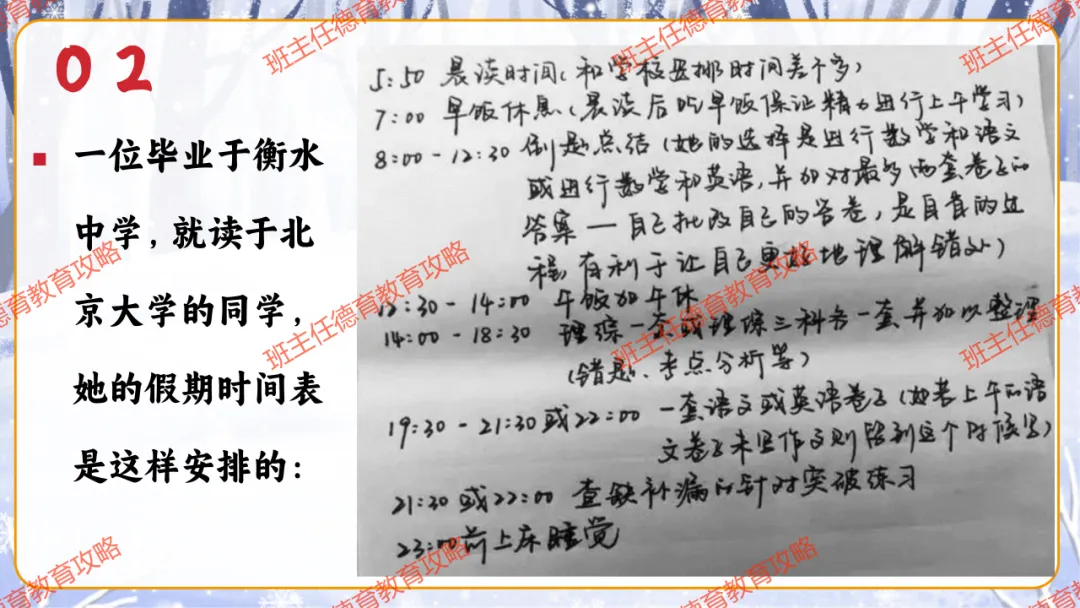 02
一位毕业于衡水
中学，就读于北
京大学的同学，
她的假期时间表
是这样安排的：
5:50 晨读时间（和学校安排时间差不多）
7:00 早饭休息（晨读后吃早饭保证精力进行上午学习）
8:00-12:30 刷题总结（她的选择是进行数学和语文
或进行数学和英语，并加对最多两套卷子的
答案—自己批改自己的答卷，是自省的过
程，有利于让自己更好地理解错处）
12:30-14:00 午饭加午休
14:00-18:30 理综一套或理综三科各一套并加以整理
（错题、考点分析等）
19:30-21:30或22:00 一套语文或英语卷子（如若上午的语
文卷子未写作文则留到这个时候写）
21:30或22:00 查缺补漏的针对突破练习
23:00前上床睡觉
班主任德育教育攻略
班主任德育教育攻略
班主任德育教育攻略
班主任德育教育攻略
班主任德育教育攻略
班主任德育教育攻略
班主任德育教育攻略
班主任德育教育攻略
班主任德育教育攻略